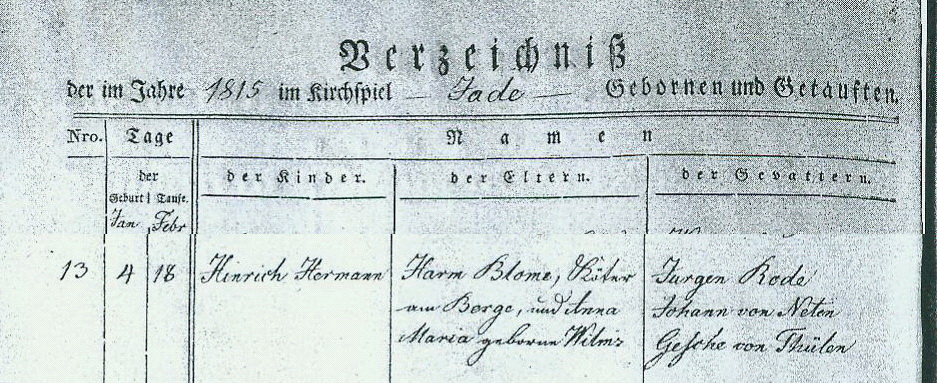 Verzeichniß
der im Jahre 1815 im Kirchspiel Jade Gebornen und Getauften.
Nro. Tage Namen
der der Kinder. der Eltern. der Gevattern.
Geburt Taufe.
Jan Febr
13 4 18 Hinrich Hermann Harm Blome, Köter Jurgen Rode
am Berge, und Anna Johann von Neten
Maria geborne Wilms Gesche von Thülen